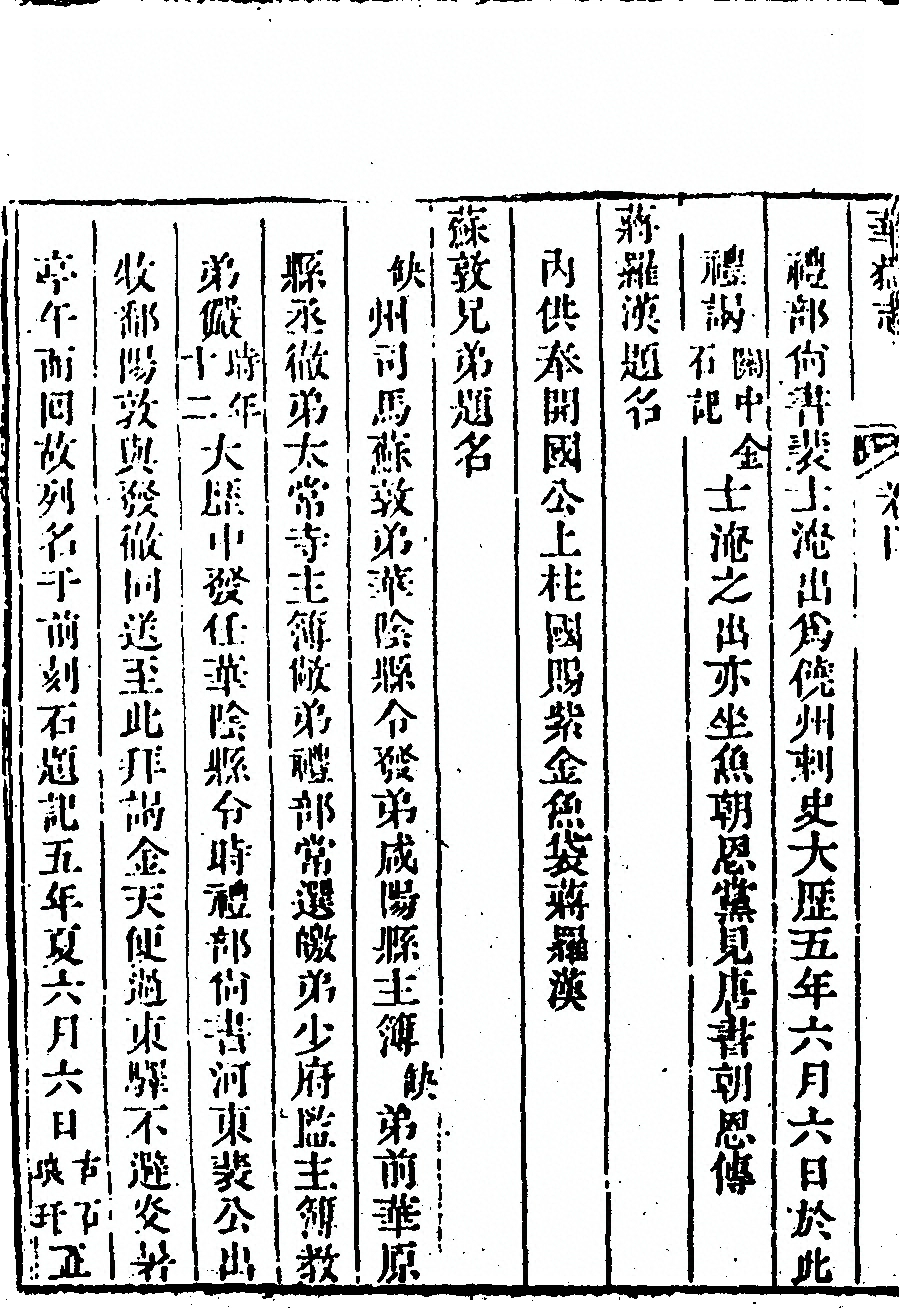 華嶽志 卷四
禮部尚書裴士淹出爲饒州刺史大歷五年六月六日於此
禮謁關中金石記士淹之出亦坐魚朝恩黨見唐書朝恩傳
蔣羅漢題名
內供奉開國公上柱國賜紫金魚袋蔣羅漢
蘇敦兄弟題名
缺州司馬蘇敦弟華陰縣令發弟咸陽縣主簿缺弟前華原
縣丞徹弟太常寺主簿敞弟禮部常選皦弟少府監主簿教
弟儼時年十二大歷中發任華陰縣令時禮部尚書河東裴公出
牧鄱陽敦與發徹同送至此拜謁金天便過東驛不避炎暑
亭午而回故列名于前刻石題記五年夏六月六日古石琅玕正